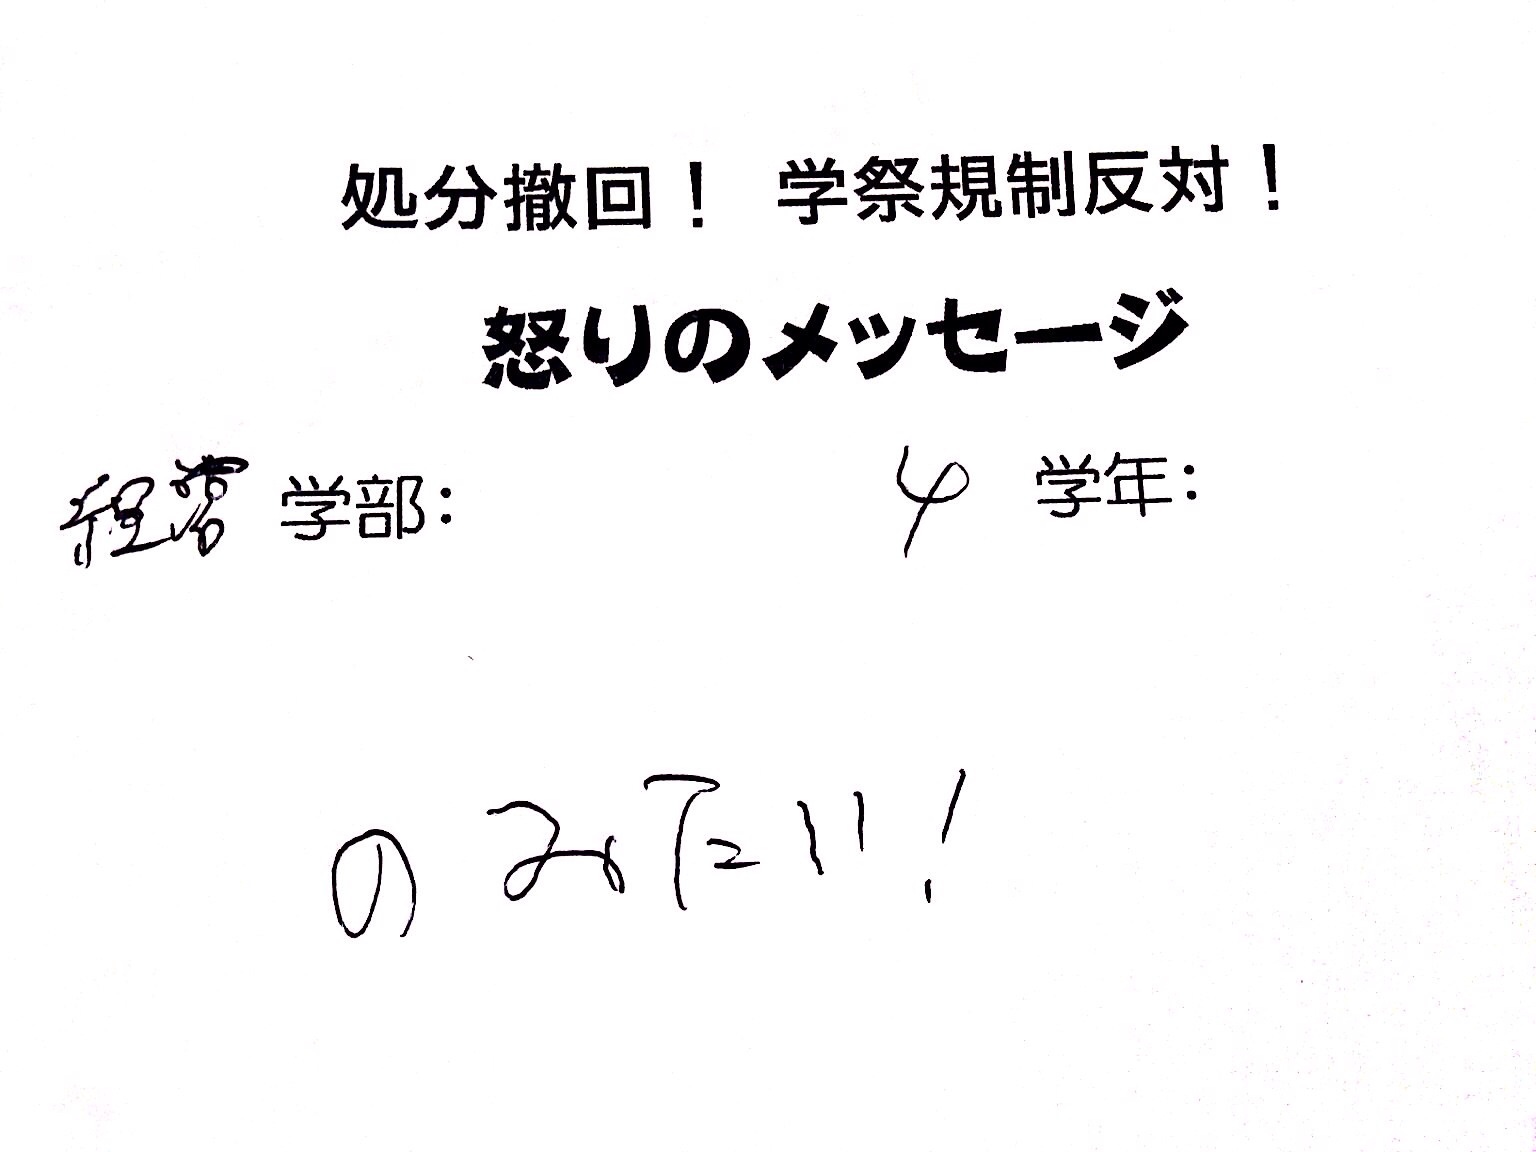 処分撤回！ 学祭規制反対！
怒りのメッセージ
経営 学部： 4 学年：
のみたい！